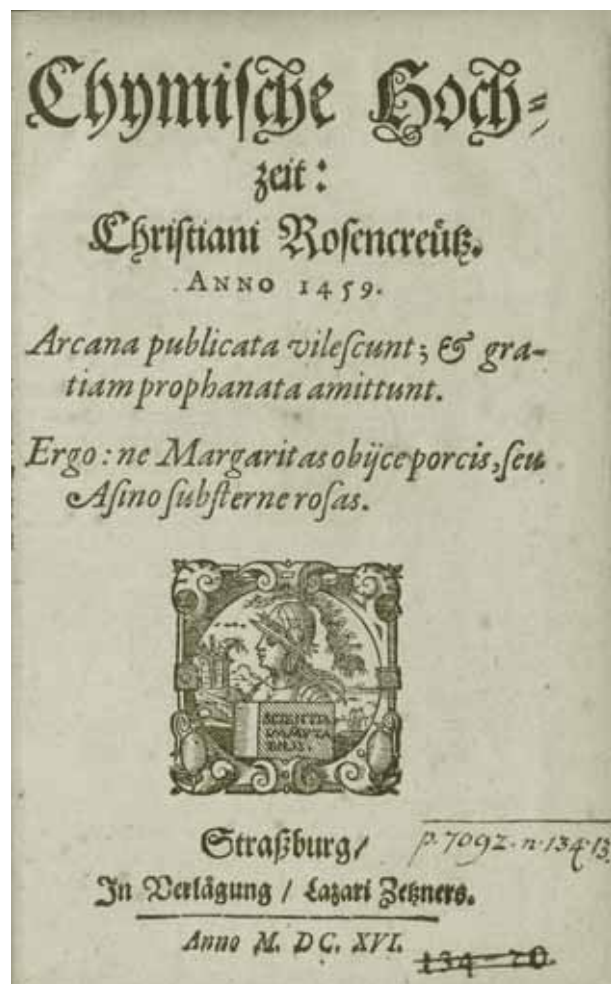 Chymiſche Hoch-
zeit:
Chriſtiani Roſencreütz.
ANNO 1459.
Arcana publicata vileſcunt; & gra-
tiam prophanata amittunt.
Ergo: ne Margaritas obijce porcis, ſeu
Aſino ſubſterne roſas.
SCIENTIA
IMMUTA
BILIS.
Straßburg/
In Verlägung / Lazari Zetzners.
Anno M. DC. XVI.
p. 7092. n. 134.13
134-20.